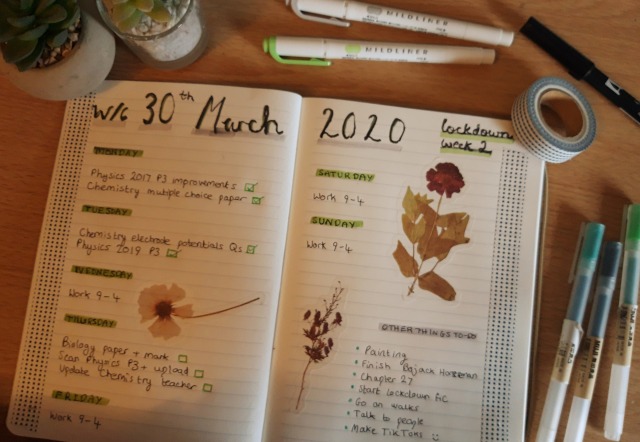 MILDLINER
MILDLINER
w/c 30th March 2020
lockdown
week 2
MONDAY
Physics 2017 P3 improvements
Chemistry multiple choice paper
TUESDAY
Chemistry electrode potentials Qs
Physics 2019 P3
WEDNESDAY
Work 9-4
THURSDAY
Biology paper + mark
Scan Physics P3 + upload
Update Chemistry teacher
FRIDAY
Work 9-4
SATURDAY
Work 9-4
SUNDAY
Work 9-4
OTHER THINGS TO-DO
• Painting
• Finish Bojack Horseman
• Chapter 27
• Start Lockdown fic
• Go on walks
• Talk to people
• Make TikToks